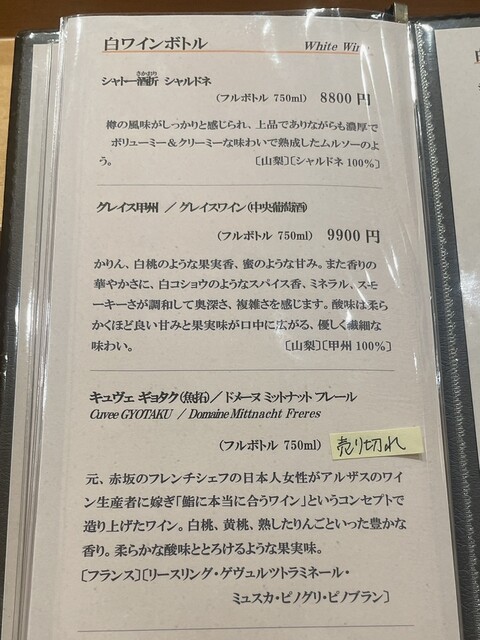 白ワインボトル White Wine
シャトー酒折 シャルドネ
(フルボトル 750ml) 8800 円
樽の風味がしっかりと感じられ、上品でありながらも濃厚で
ボリューミー＆クリーミーな味わいで熟成したムルソーのよ
う。 〔山梨〕〔シャルドネ 100%〕
グレイス甲州 ／ グレイスワイン(中央葡萄酒)
(フルボトル 750ml) 9900 円
かりん、白桃のような果実香、蜜のような甘み。また香りの
華やかさに、白コショウのようなスパイス香、ミネラル、スモ
ーキーさが調和して奥深さ、複雑さを感じます。酸味は柔ら
かくほど良い甘みと果実味が口中に広がる、優しく繊細な
味わい。 〔山梨〕〔甲州 100%〕
キュヴェ ギョタク(魚拓)／ドメーヌ ミットナット フレール
Cuvee GYOTAKU / Domaine Mittnacht Freres
(フルボトル 750ml) 売り切れ
元、赤坂のフレンチシェフの日本人女性がアルザスのワイ
ン生産者に嫁ぎ「鮨に本当に合うワイン」というコンセプトで
造り上げたワイン。白桃、黄桃、熟したりんごといった豊かな
香り。柔らかな酸味ととろけるような果実味。
〔フランス〕〔リースリング・ゲヴュルツトラミネール・
ミュスカ・ピノグリ・ピノブラン〕